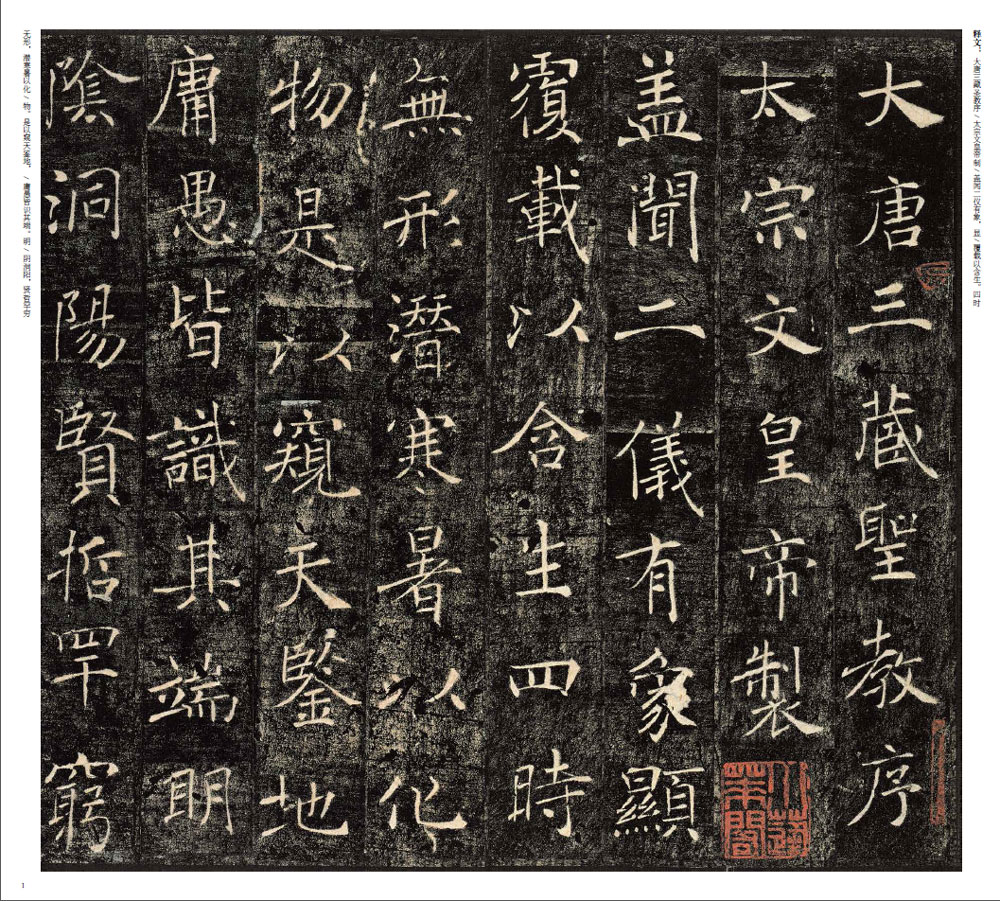 释文：大唐三藏圣教序/太宗文皇帝制/盖闻二仪有象，显/覆载以含生。四时
大唐三藏聖教序
太宗文皇帝製
盖聞二儀有象顯
覆載以含生四時
無形潛寒暑以化
物是以窺天鑒地
庸愚皆識其端明
陰洞陽賢哲罕窮
无形，潜寒暑以化/物。是以窥天鉴地，/庸愚皆识其端。明/阴洞阳，贤哲罕穷
1